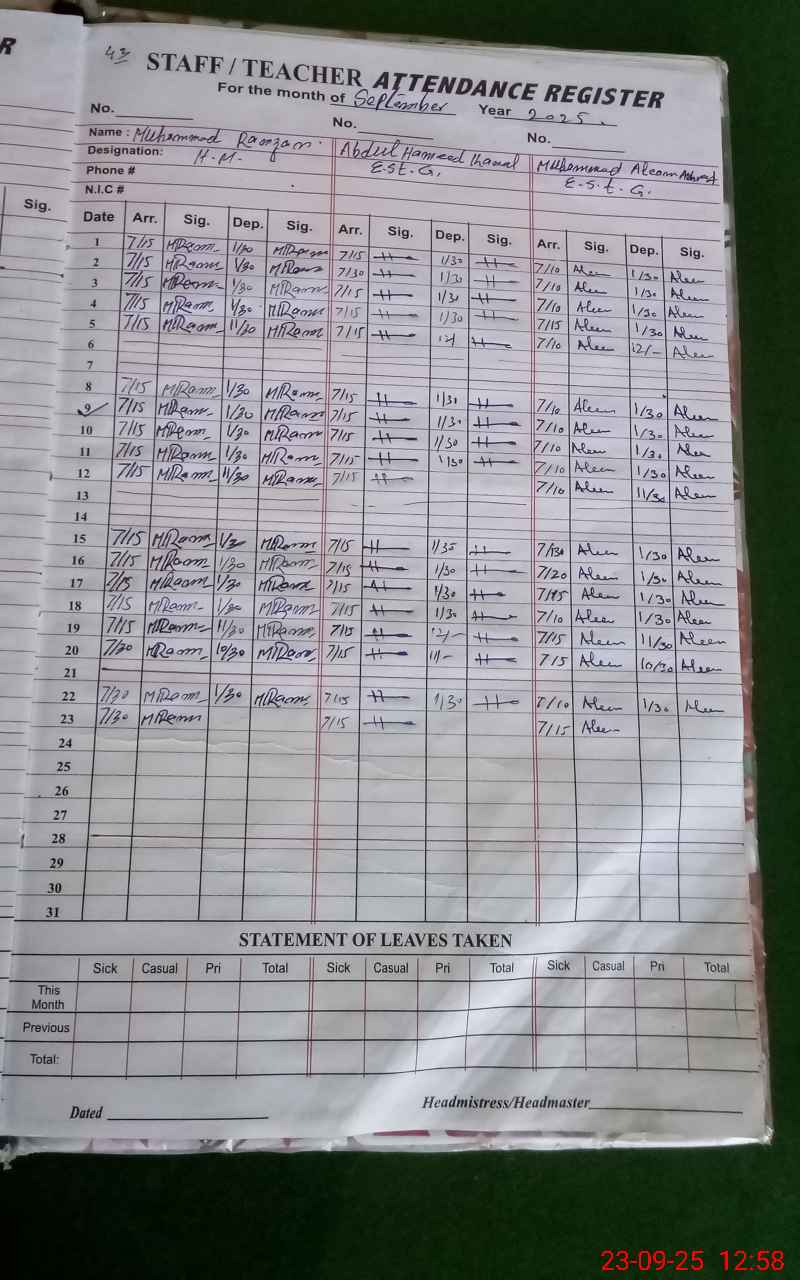 R
43
STAFF / TEACHER ATTENDANCE REGISTER
For the month of September Year 2025.
No. No. No.
Name : Muhammad Ramzan. Abdul Hameed Kamal Muhammad Aleem
Designation: H.M. E.St.G. E.S.t.G.
Phone #
N.I.C #
Sig.
Date Arr. Sig. Dep. Sig. Arr. Sig. Dep. Sig. Arr. Sig. Dep. Sig.
1 7/15 MRamn 1/30 MRamn 7/15 1/30 7/10 Aleem 1/30 Aleem
2 7/15 MRamn 1/30 MRamn 7/30 1/30 7/10 Aleem 1/30 Aleem
3 7/15 MRamn 1/30 MRamn 7/15 1/30 7/10 Aleem 1/30 Aleem
4 7/15 MRamn 1/30 MRamn 7/15 1/30 7/15 Aleem 1/30 Aleem
5 7/15 MRamn 11/30 MRamn 7/15 12/ 7/10 Aleem 12/- Aleem
6
7
8 7/15 MRamn 1/30 MRamn 7/15 1/30 7/10 Aleem 1/30 Aleem
9 7/15 MRamn 1/30 MRamn 7/15 1/30 7/10 Aleem 1/30 Aleem
10 7/15 MRamn 1/30 MRamn 7/15 1/30 7/10 Aleem 1/30 Aleem
11 7/15 MRamn 1/30 MRamn 7/15 1/30 7/10 Aleem 1/30 Aleem
12 7/15 MRamn 11/30 MRamn 7/15 7/10 Aleem 11/30 Aleem
13
14
15 7/15 MRamn 1/30 MRamn 7/15 1/35 7/30 Aleem 1/30 Aleem
16 7/15 MRamn 1/30 MRamn 7/15 1/30 7/20 Aleem 1/30 Aleem
17 7/15 MRamn 1/30 MRamn 7/15 1/30 Aleem 1/30 Aleem
18 7/15 MRamn 1/30 MRamn 7/15 1/30 7/10 Aleem 1/30 Aleem
19 7/15 MRamn 11/30 MRamn 7/15 12/- 7/15 Aleem 11/30 Aleem
20 7/30 MRamn 10/30 MRamn 7/15 11/- 7/15 Aleem 10/30 Aleem
21
22 7/30 MRamn 1/30 MRamn 7/15 1/30 7/10 Aleem 1/30 Aleem
23 7/30 MRamn 7/15 7/15 Aleem
24
25
26
27
28
29
30
31
STATEMENT OF LEAVES TAKEN
Sick Casual Pri Total Sick Casual Pri Total Sick Casual Pri Total
This
Month
Previous
Total:
Dated Headmistress/Headmaster
23-09-25 12:58